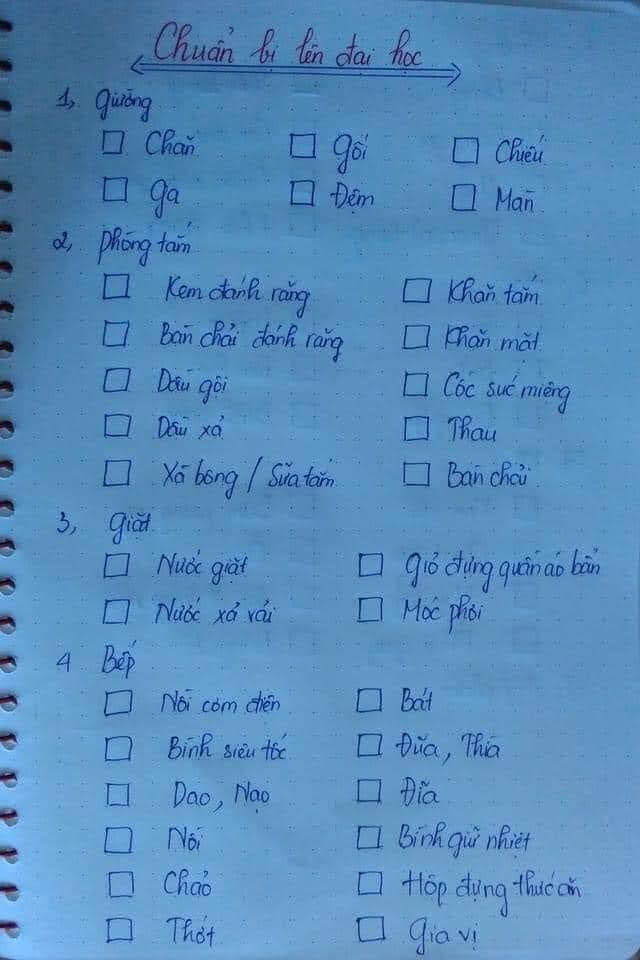 Chuẩn bị lên đại học
1, Giường
Chăn Gối Chiếu
Ga Đệm Màn
2, Phòng tắm
Kem đánh răng Khăn tắm
Bàn chải đánh răng Khăn mặt
Dầu gội Cốc súc miệng
Dầu xả Thau
Xà bông / Sữa tắm Bàn chải
3, Giặt
Nước giặt Giỏ đựng quần áo bẩn
Nước xả vải Móc phơi
4 Bếp
Nồi cơm điện Bát
Bình siêu tốc Đũa, Thìa
Dao, Nạo Đĩa
Nồi Bình giữ nhiệt
Chảo Hộp đựng thức ăn
Thớt Gia vị